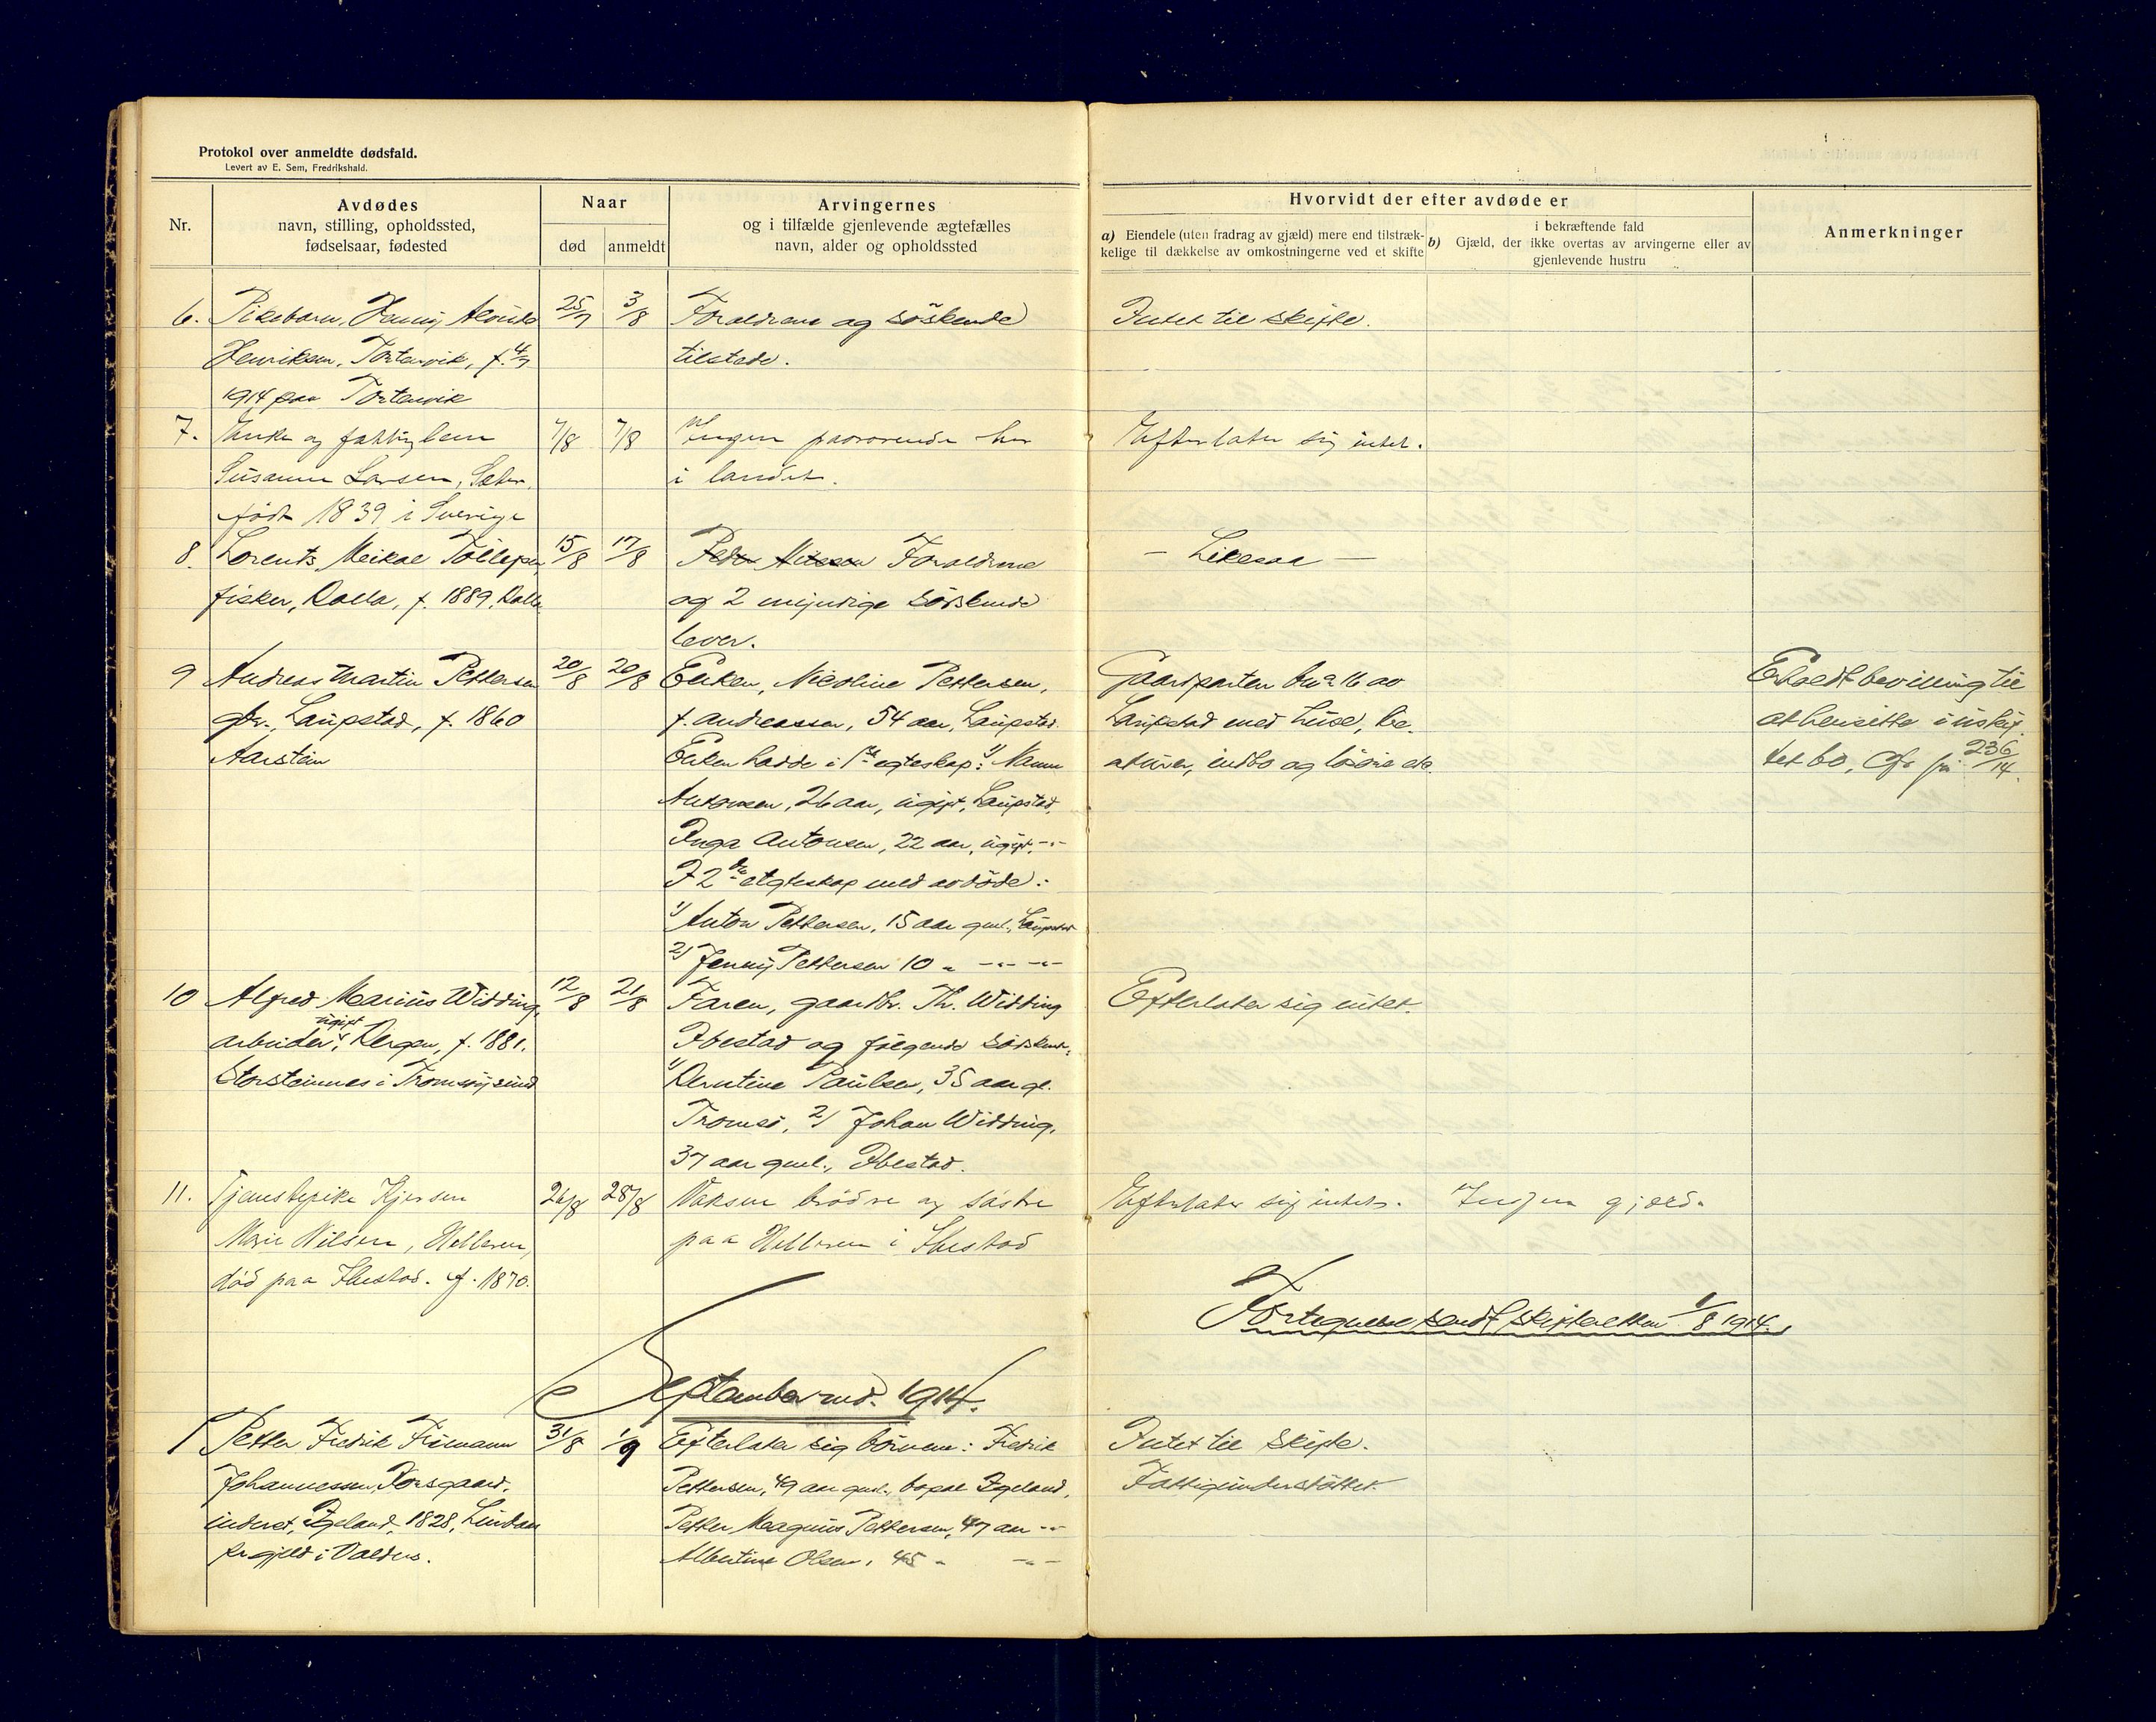 Protokol over anmeldte dødsfald.
Levert av E. Sem, Fredrikshald.
Nr.
Avdødes
navn, stilling, opholdssted,
fødselsaar, fødested
Naar
død
anmeldt
Arvingernes
og i tilfælde gjenlevende ægtefælles
navn, alder og opholdssted
Hvorvidt der efter avdøde er
a) Eiendele (uten fradrag av gjæld) mere end tilstræk-
kelige til dækkelse av omkostningerne ved et skifte
i bekræftende fald
b) Gjæld, der ikke overtas av arvingerne eller av
gjenlevende hustru
Anmerkninger
6. Pikebarn, Jenny 25/7 3/8 Foræeldrene og søskende Intet til skifte.
Henriksen, Tortenvik, f. 4/7 tilstede.
1914 paa Tortenvik
7. Enke og fattiglem 7/8 7/8 Ingen paarørende her Efterlater sig intet.
Susanne Larsen, Sæter, i landet.
født 1839 i Sverige
8. Lorents Meikal Tollefsen, 15/8 17/8 Forældrene – Likesaa –
fisker, Rolla, f. 1889, Rolla og 2 myndige søskende
lever.
9 Andreas Martin Pettersen 20/8 20/8 Enken, Nicoline Pettersen, Gaardparten bno 16 av Erholdt bevilling til
gbr., Laupstad, f. 1860 f. Andreassen, 54 aar, Laupstad. Laupstad med huse, kre- at hensitte i uskif-
Aarstein Enken hadde i 1ste egteskap: 1/ Nanna aturer, indbo og løsøre etc. tet bo, Cfr. 236/14.
Antonsen, 26 aar, ugift, Laupstad,
Inga Antonsen, 22 aar, ugift, -"-
I 2det egteskap med avdøde:
1/ Anton Pettersen, 15 aar gml., Laupstad
2/ Jenny Pettersen 10 " -"- -"-
10 Alfred Marius Widding, 12/8 21/8 Faren, gaardbr. Th. Widding Efterlater sig intet.
ugift
arbeider, Bergen, f. 1881. Ibestad og følgende søskende:
Storsteinnes i Tromsøysund 1/ Berntine Paulsen, 35 aar gl.
Tromsø, 2/ Johan Widding,
37 aar gml., Ibestad.
11. Tjenestepike 26/8 28/8 Voksne brødre og søstre Efterlater sig intet. Ingen gjæld.
Marie Nilsen, Helleren, paa Helleren i Ibestad
død paa Ibestad. f. 1870.
Fortegnelse sendt skifteretten 1/8 1914.
September md. 1914.
1 Petter Fredrik Friman 31/8 1/9 Efterlater sig børnene: Fredrik Intet til skifte.
Johannessen, Forsgaard, Pettersen, 49 aar gml., bopæl Igeland, Fattigunderstøttet.
inderst, Igeland, 1828, Petter Magnus Pettersen, 47 aar -"-
i Valders. Albertine Olsen, 45 " -"-